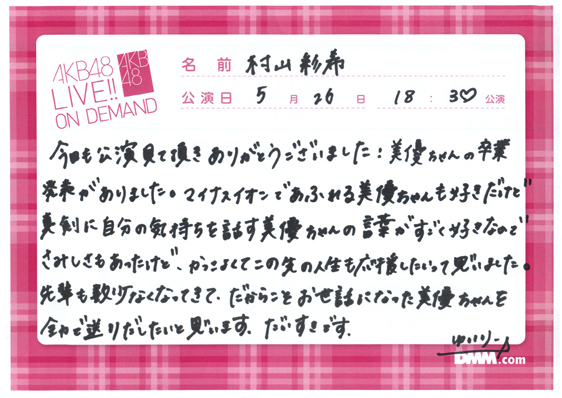 AKB48
LIVE!!
ON DEMAND
AKB
48
名前 村山彩希
公演日 5月26日 18:30公演
今日も公演見て頂きありがとうございました!美優ちゃんの卒業
発表がありました。マイナスイオンであふれる美優ちゃんも好きだけど
真剣に自分の気持ちを話す美優ちゃんの言葉がすごく好きなので
さみしさもあったけど、かっこよくてこの先の人生も応援したいって思いました。
先輩も数少なくなってきて、だからこそお世話になった美優ちゃんを
全力で送りだしたいと思います。だいすきです。
ゆいりー
DMM.com